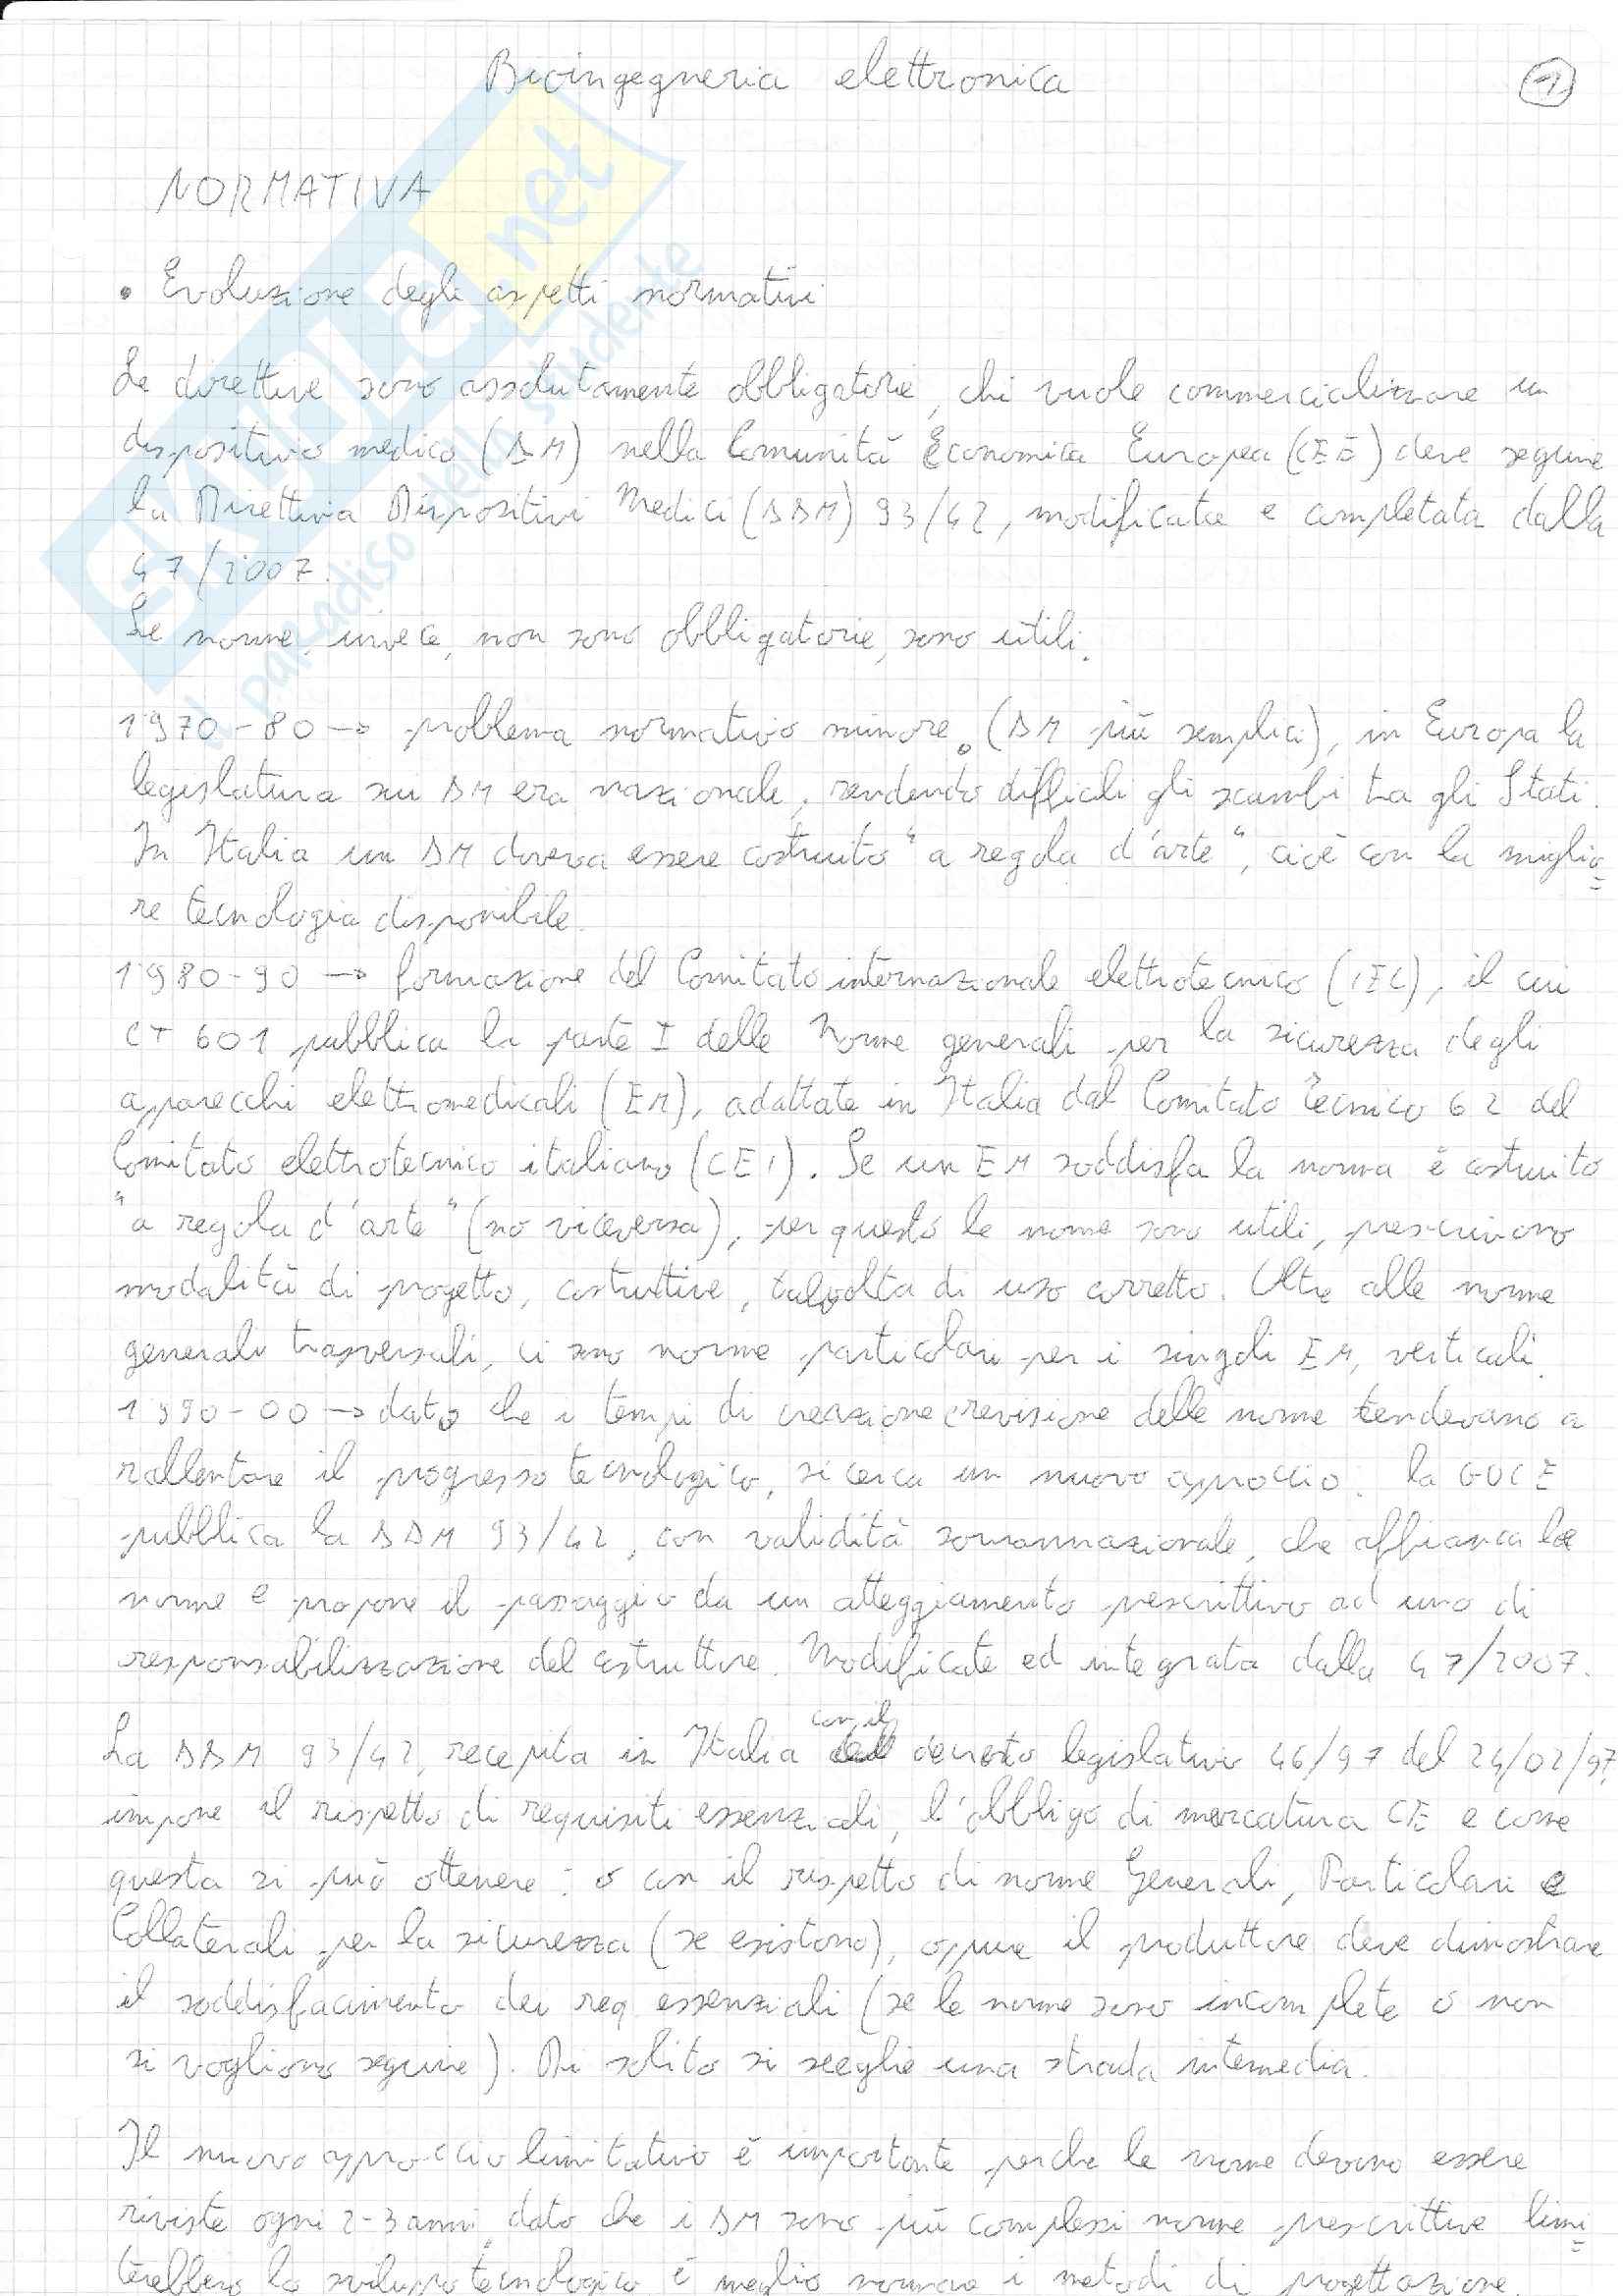 Bioingegneria elettronica
1
NORMATIVA
• Evoluzione degli aspetti normativi
Le direttive sono assolutamente obbligatorie, chi vuole commercializzare un
dispositivo medico (DM) nella Comunità Economica Europea (CEE) deve seguire
la Direttiva Dispositivi Medici (DDM) 93/42, modificata e completata dalla
47/2007.
Le norme, invece, non sono obbligatorie, sono utili.
1970-80 → problema normativo minore (DM più semplici), in Europa la
legislatura sui DM era nazionale, rendendo difficili gli scambi tra gli Stati.
In Italia un DM doveva essere costruito "a regola d'arte", cioè con la miglio
re tecnologia disponibile.
1980-90 → formazione del Comitato internazionale elettrotecnico (IEC), il cui
CT 601 pubblica la parte I delle Norme generali per la sicurezza degli
apparecchi elettromedicali (EM), adattate in Italia dal Comitato Tecnico 62 del
Comitato elettrotecnico italiano (CEI). Se un EM soddisfa la norma è costruito
"a regola d'arte" (no viceversa), per questo le norme sono utili, prescrivono
modalità di progetto, costruttive, talvolta di uso corretto. Oltre alle norme
generali trasversali, ci sono norme particolari per i singoli EM, verticali.
1990-00 → dato che i tempi di creazione e revisione delle norme tendevano a
rallentare il progresso tecnologico, si cerca un nuovo approccio. La GUCE
pubblica la DDM 93/42, con validità sovrannazionale, che affianca le
norme e propone il passaggio da un atteggiamento prescrittivo ad uno di
responsabilizzazione del costruttore. Modificata ed integrata dalla 47/2007.
La DDM 93/42, recepita in Italia con il decreto legislativo 46/97 del 24/02/97,
impone il rispetto di requisiti essenziali, l'obbligo di marcatura CE e come
questa si può ottenere: o con il rispetto di norme Generali, Particolari e
Collaterali per la sicurezza (se esistono), oppure il produttore deve dimostrare
il soddisfacimento dei req. essenziali (se le norme sono incomplete o non
si vogliono seguire). Di solito si sceglie una strada intermedia.
Il nuovo approccio limitativo è importante perché le norme devono essere
riviste ogni 2-3 anni, dato che i DM sono più complessi norme prescrittive limi
terebbero lo sviluppo tecnologico è meglio normare i metodi di progettazione.
EXAMIA.net
il paradiso dello studente